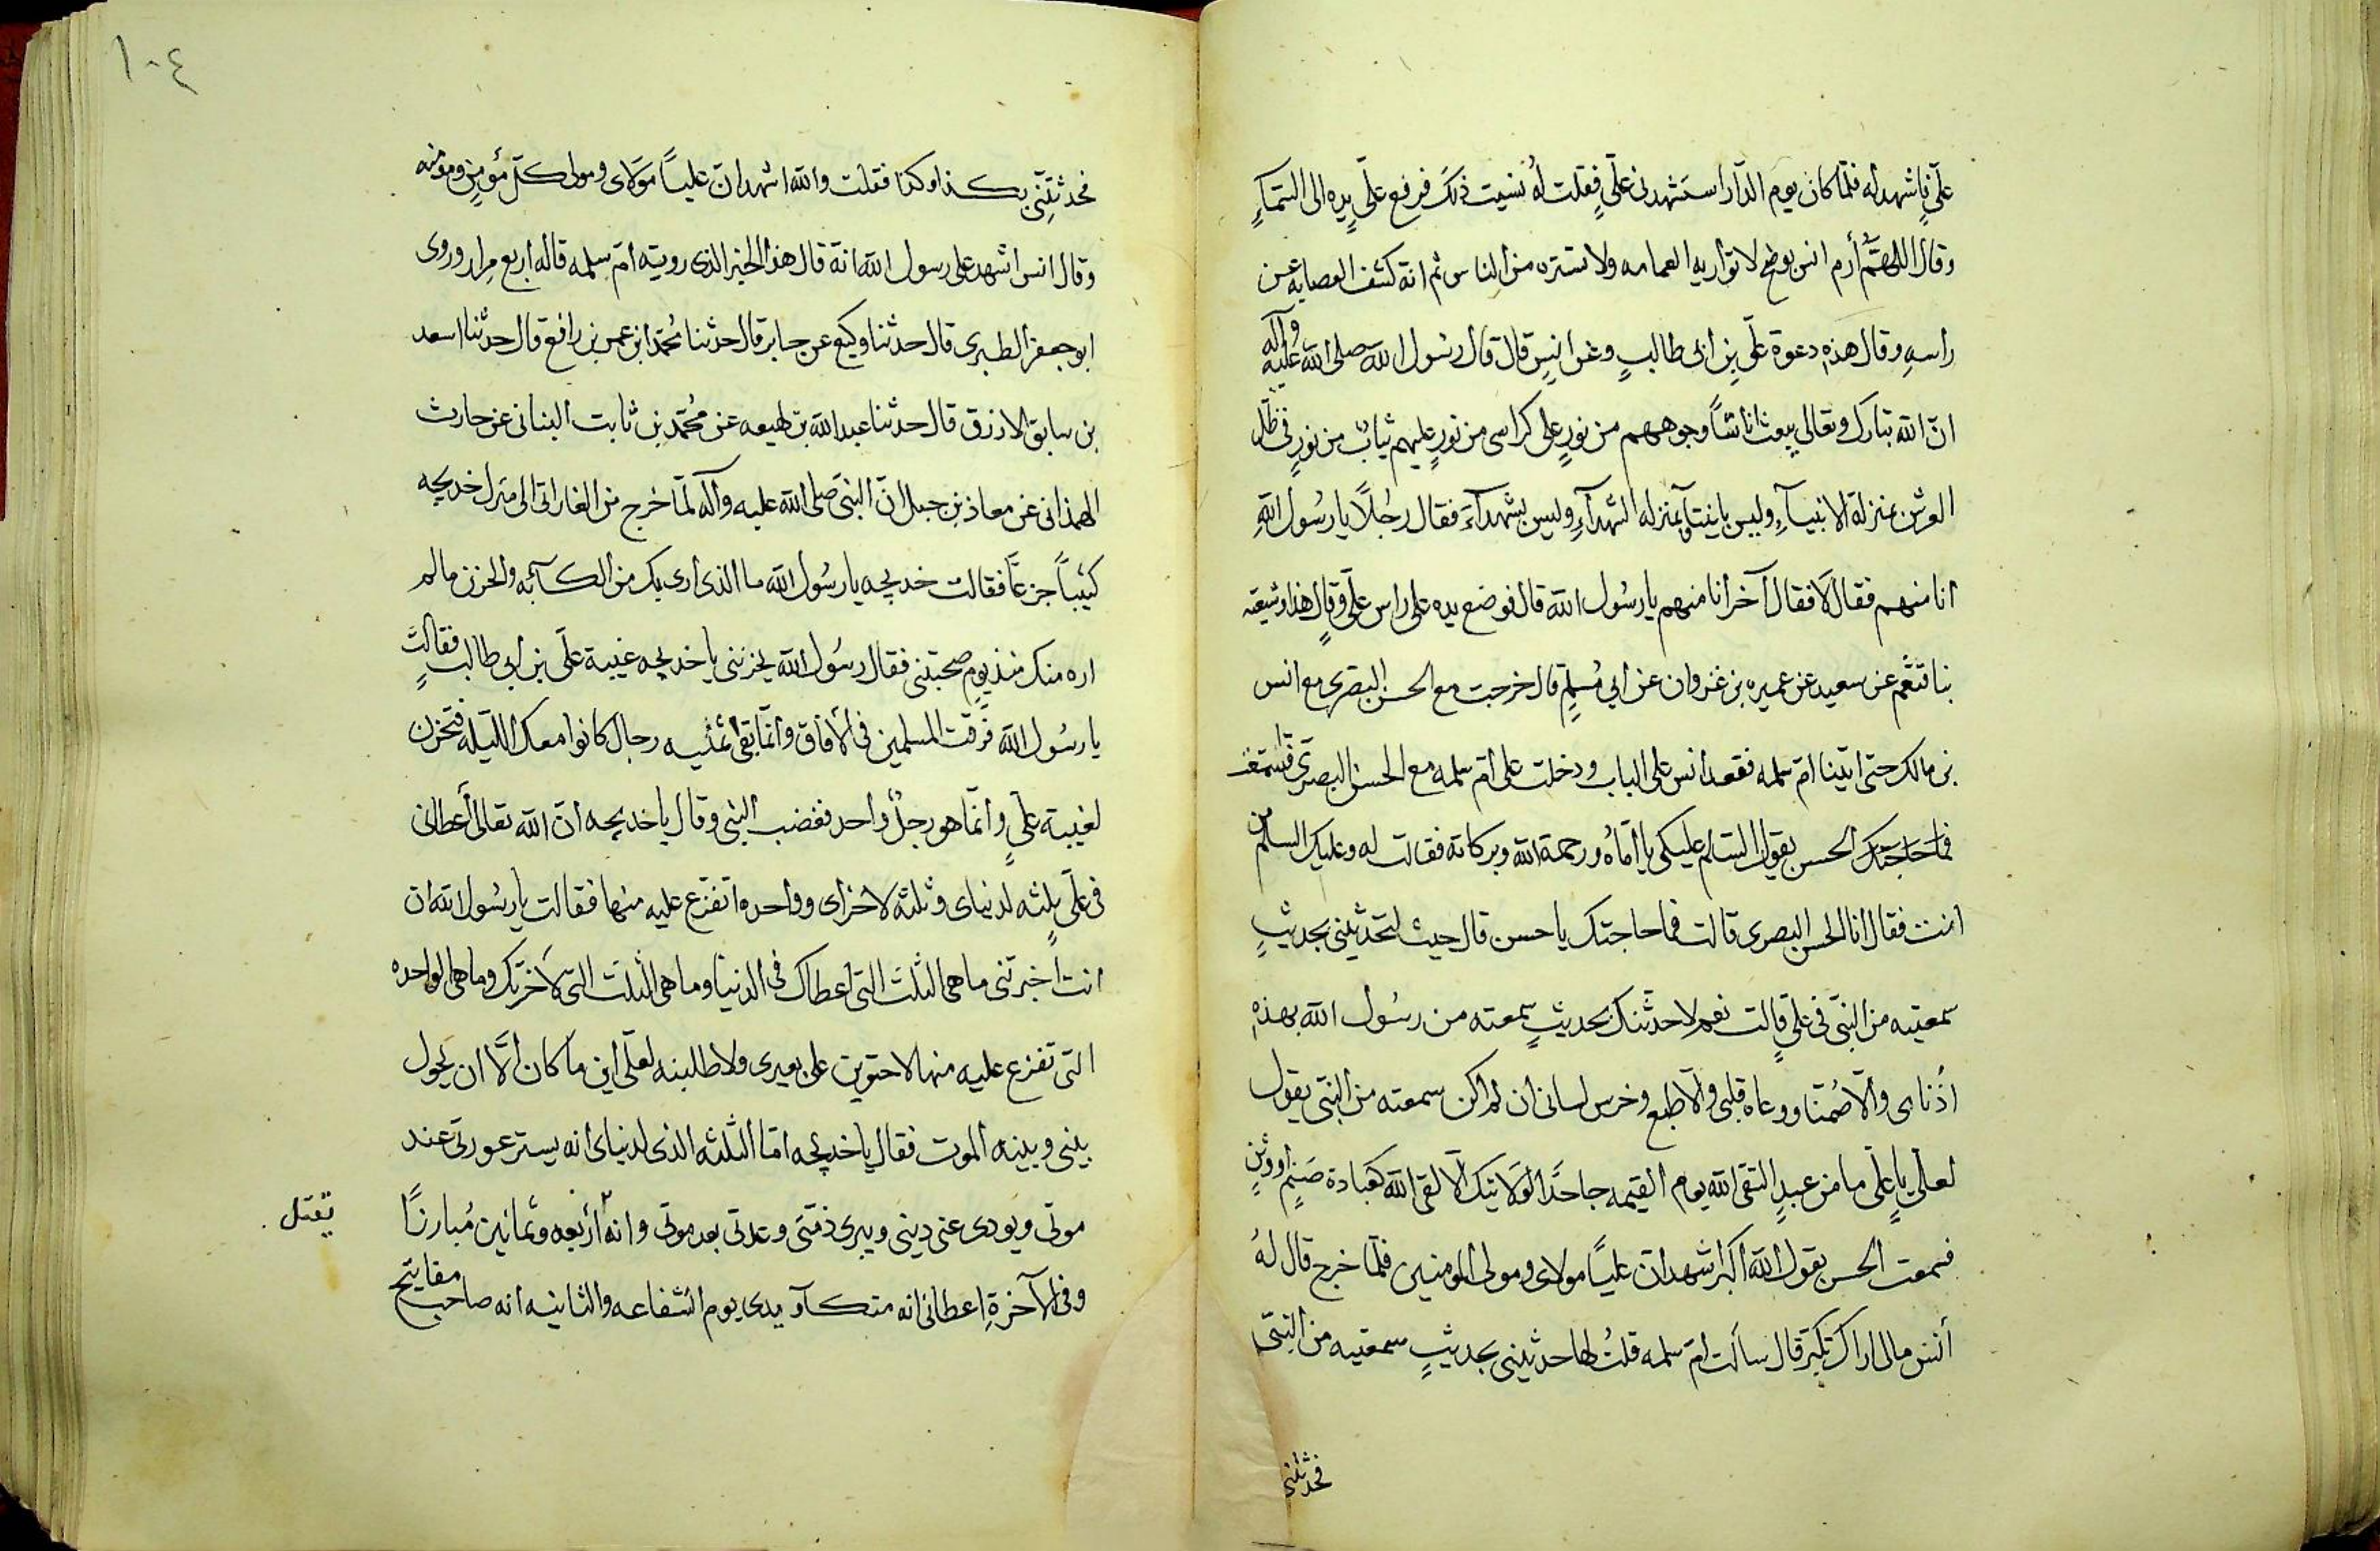 علىّ فاشهد له فلمّا كان يوم الدّار استشهدنى علىٍّ فقلت لهُ نسيت ذلك فرفع علىّ يده الى السّمآءِ
وقال اللّهمّ أرم انس بوضحٍ لا تواريه العمامه ولا تستره من الناس ثم انّه كشف العصابه عن
راسهِ وقال هذهِ دعوة علىّ بن ابى طالبٍ وعن انسٍ قال قال رسُول الله صلى الله عليه وآله
انّ الله تبارك وتعالى يبعث اناسًا وجوههم من نورٍ على كراسى من نورٍ عليهم ثيابٌ من نورٍ فى ظلّ
العرش بمنزلة الانبيآءِ وليس بانبيآء وبمنزله الشهدآءِ وليس بشهدآءَ فقال رجُلاً يا رسُول اللهِ
انا منهم فقال لَا فقال آخر انا منهم يا رسُول الله قال فوضع يده على راس علىٍّ وقال هذا وشيعته
عن سعيد عن عميره بن غزوان عن ابى مُسلمٍ قال خرجت مع الحسن البصرى مع انس
بن مالك حتى اتينا امّ سلمه فقعد انس على الباب ودخلت على امّ سلمه مع الحسن البصرى فسمعت
فما حاجتك الحسن يقول السّلام عليكى يا امّاهُ ورحمة الله وبركاته فقالت له وعليك السلام من
انت فقال انا الحسن البصرى قالت فما حاجتك يا حسن قال حيث لتحدثينى بحديثٍ
سمعتيه من النبّى فى علىٍّ قالت نعم لاحدثنّك بحديثٍ سمعته من رسُول الله بهذهِ
أُذناى والّا صُمّتا ووعاه قلبى والّا طبع وخرس لسانى ان لم اكن سمعته من النبّى يقول
لعلىٍّ يا علىّ ما من عبدٍ التقى الله يوم القيمه جاحدًا لولايتك الّا لقى الله كعبادة صَنمٍ او وثنٍ
فسمعت الحسن يقول الله اكبر اشهد انّ عليًا مولاى ومولى المومنين فلمّا خرج قال لهُ
أنس مالى اراك تكبّر قال سالت امّ سلمه قلتُ لها حدثينى بحديثٍ سمعتيه من النبّى
فحدثتنى
١٠٤
فحدثتنى بكذا وكذا فقلت والله اشهد انّ عليًا مولاى ومولى كلّ مؤمنٍ ومومنه
وقال انس اشهد على رسول الله انّه قال هذا الخبر الذى رويته امّ سلمه قاله أربع مرار وروى
ابو جعفر الطبرى قال حدثنا وكيع عن جابر قال حدثنا مُحمّد ابن عمر بن رافع قال حدثنا اسعد
بن سابق الازرق قال حدثنا عبد الله بن لهيعه عن مُحمّد بن ثابت البنانى عن حارث
الهمذانى عن معاذ بن جبل انّ النبّى صلى الله عليه وآله لمّا خرج من الغار اتى الى منزل خديجه
كئيباً جزعًا فقالت خديجه يا رسُول الله ما الذى ارى بك من الكآبه والحزن ما لم
اره منك منذ يوم صحبتنى فقال رسُول الله يحزننى يا خديجه غيبة علىّ بن ابى طالبٍ فقالت
يا رسُول الله فرّقت المسلمين فى الآفاق وانّما بقى ثمنيه رجال كانوا معك الليله فتحزن
لغيبة علىٍّ وانّما هو رجلٌ واحد فغضب النبى وقال يا خديجه انّ الله تعالى أعطانى
فى علىٍّ ثلثه لدنياى وثلثه لاخراى وواحده اتفزّع عليه منها فقالت يا رسُول الله ان
انت اخبرتنى ما هى الثلث التى اعطاك فى الدنيا وما هى الثلث التى لآخرتك وما هى الواحده
التى تفزع عليه منها لاحتوين على بعيرى ولاطلبنه لعلّى اين ما كان الَّا ان يحول
بينى وبينه الموت فقال يا خديجه امّا الثلثه الذى لدنياى انه يستر عورتى عند
موتى ويودى عنى دينى ويبرى ذمّتى وعدتى بعد موتى وانه أربعه وثمانين مُبارزًا
يقتل
وفى الآخرةِ اعطانى انه متكآء يدى يوم الشفاعه والثانيه انه صاحب مفاتيح